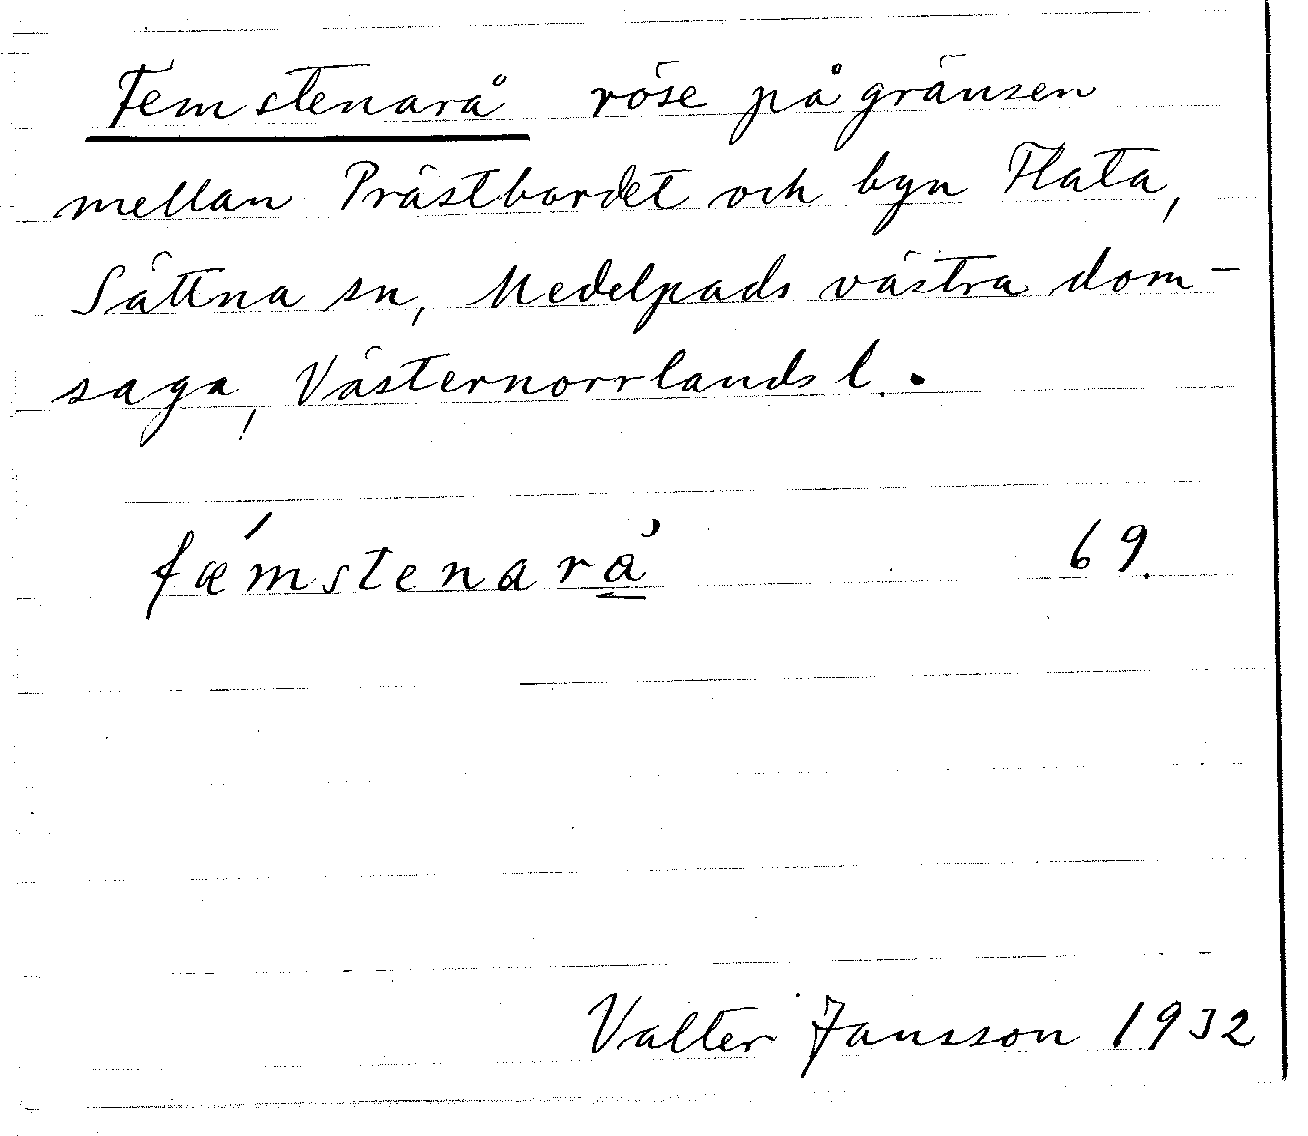 Femstenarå röse på gränsen
mellan Prästbordet och byn Flata,
Sättna sn, Medelpads västra dom-
saga, Västernorrlands l.
fǽmstenarå̀ 69.
Valter Jansson 1932